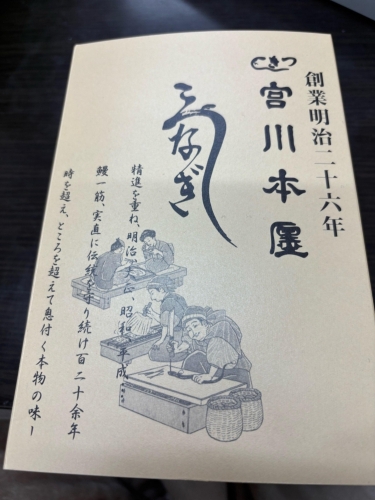 創業明治二十六年
つきじ
宮川本廛
うなぎ
精進を重ね、明治、大正、昭和、平成
鰻一筋、実直に伝統を守り続け百二十余年
時を超え、ところを超えて息付く本物の味ー